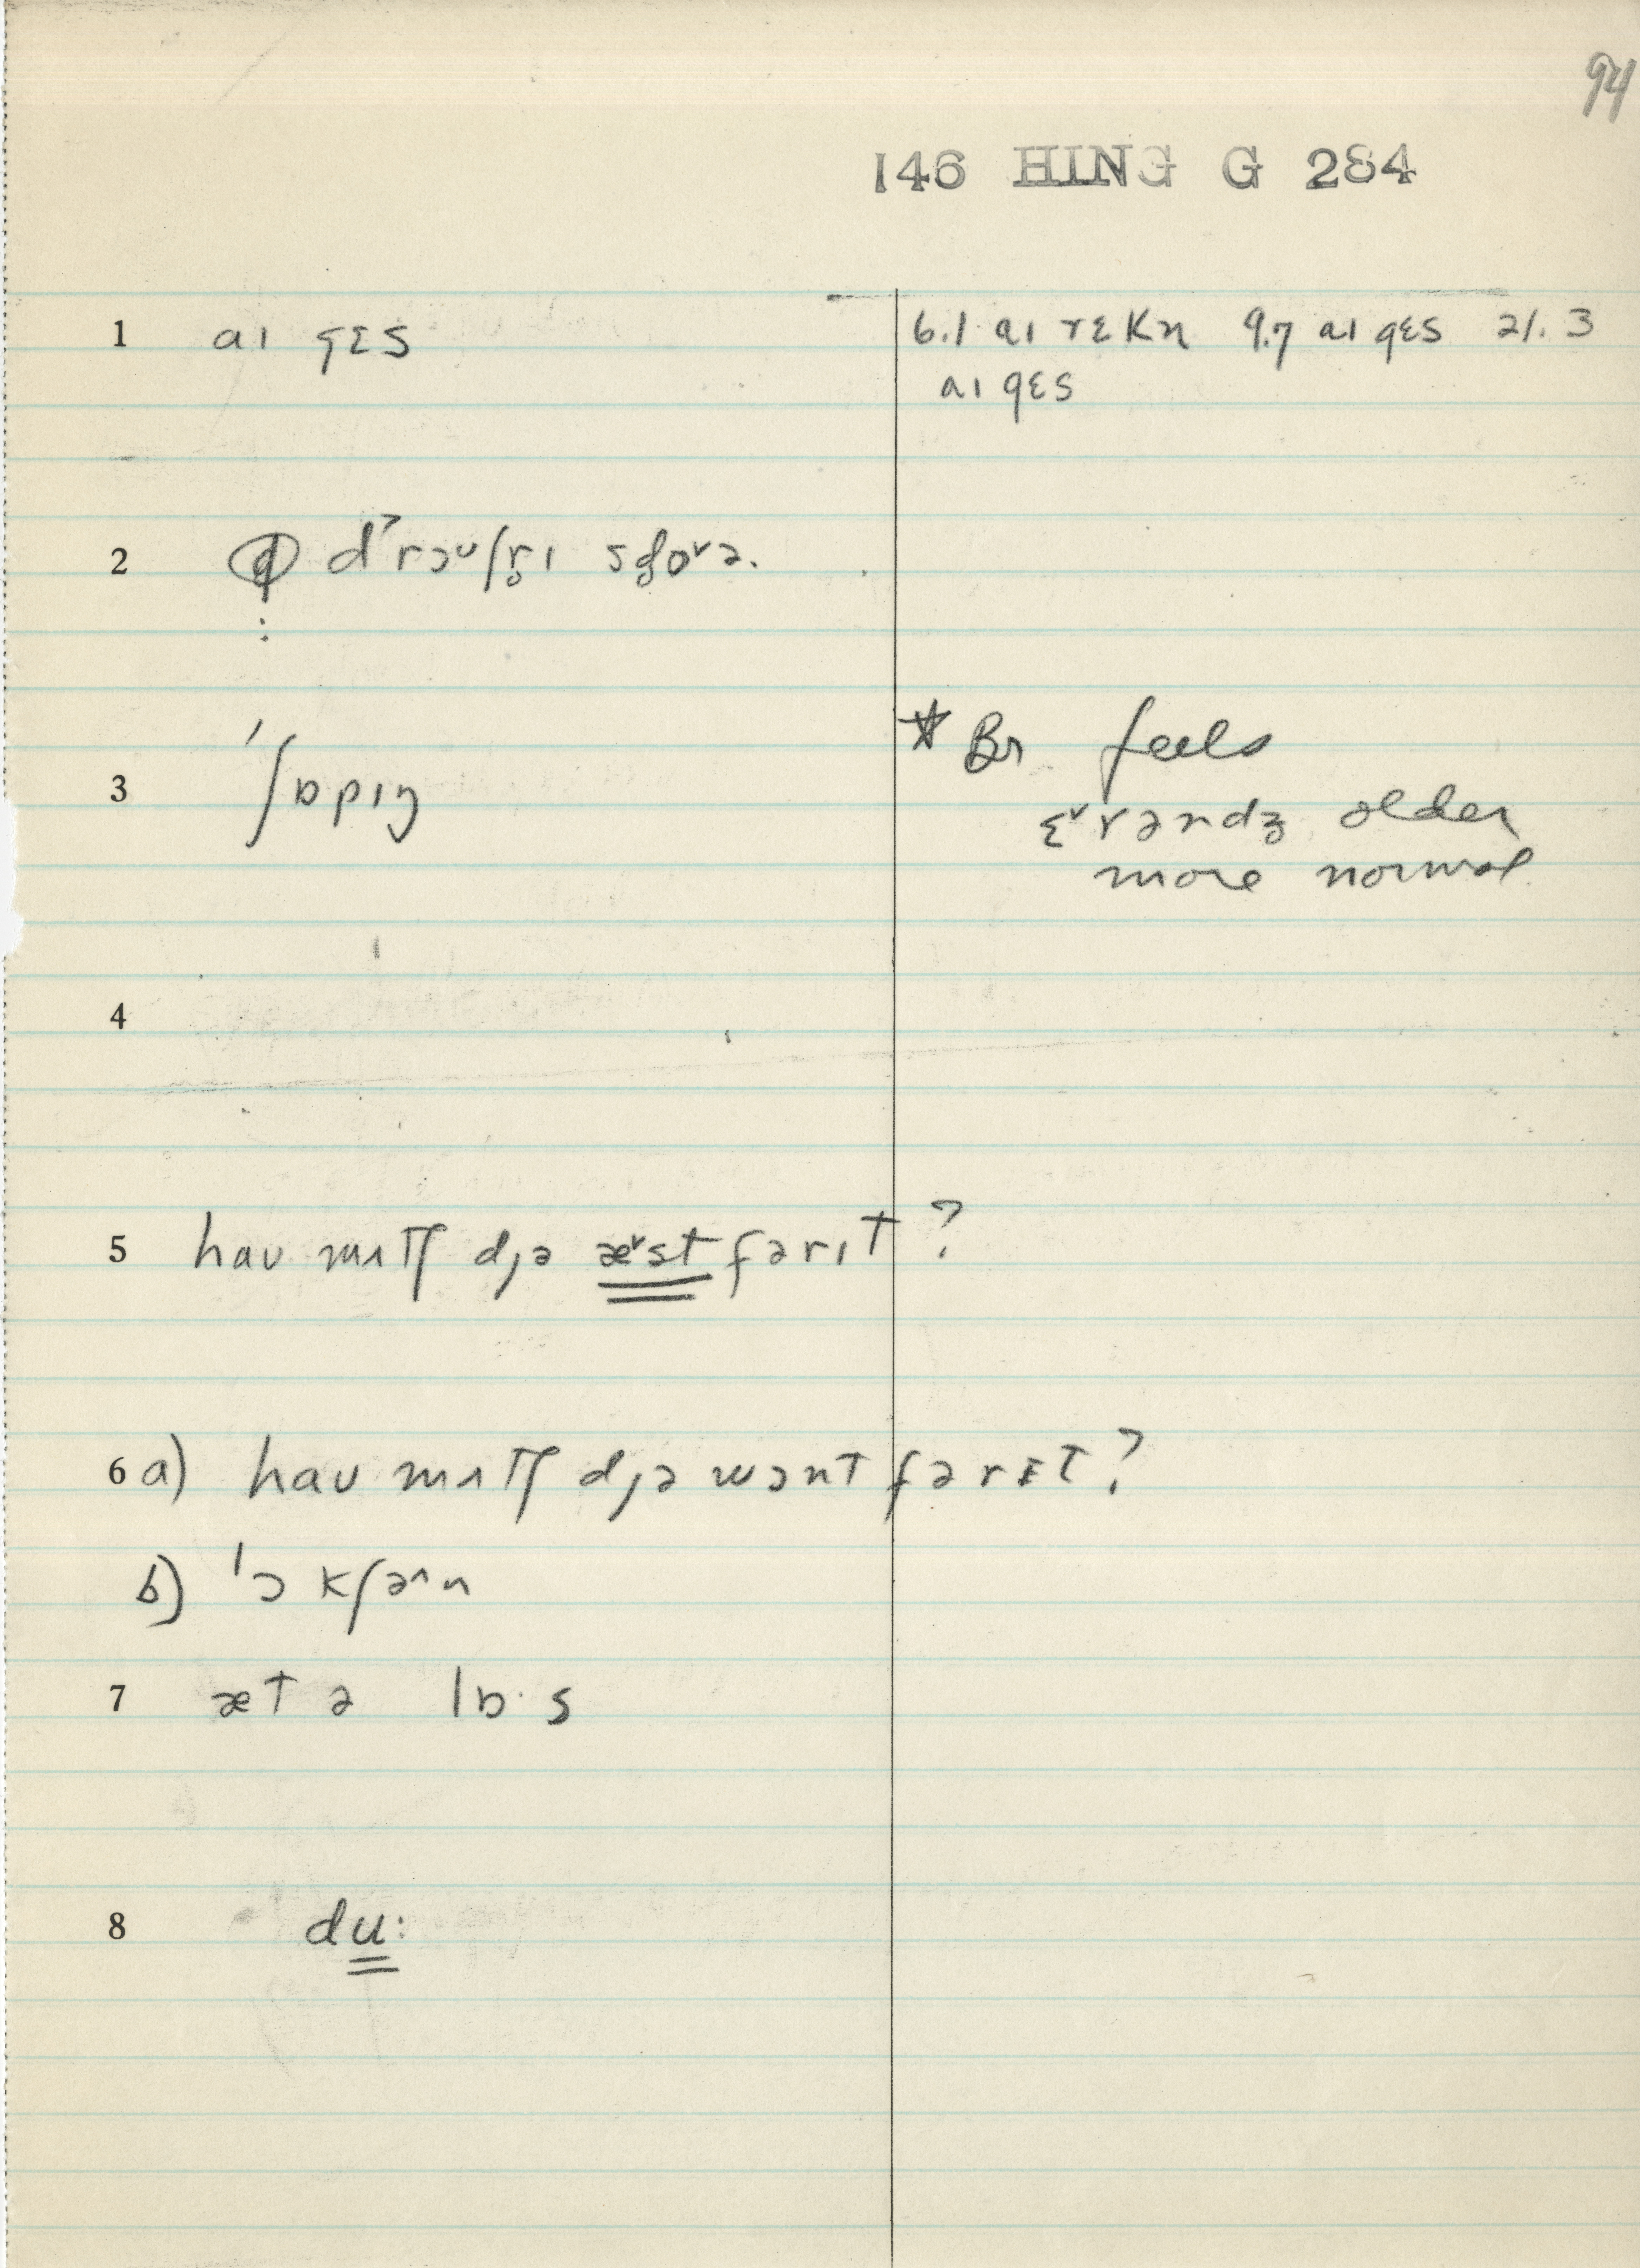 94
146 HING G 284
1 aɪ gɛs
6.1 aɪ rɛkn 9.7 aɪ gɛs 21.3
aɪ gɛs
2
3 ˈʃɒpɪŋ
* Br feels
ɛ˅rəndz older
more normal
4
5 haʊ mʌtʃ dɟə æ˅st fərɪt?
6 a) haʊ mʌtʃ dɟə wɔnt fərɪt?
b) ˈɔkʃə^n
7 æt ə lɒ·s
8 du: